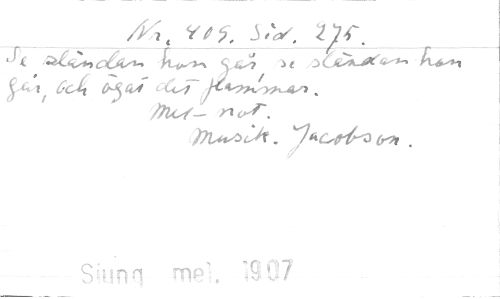 Nr. 409. Sid. 275.
Se sländan hon går, se sländan hon
går, och ögat det flammar.
Mel-not.
Musik. Jacobson.
Sjung mel. 1907